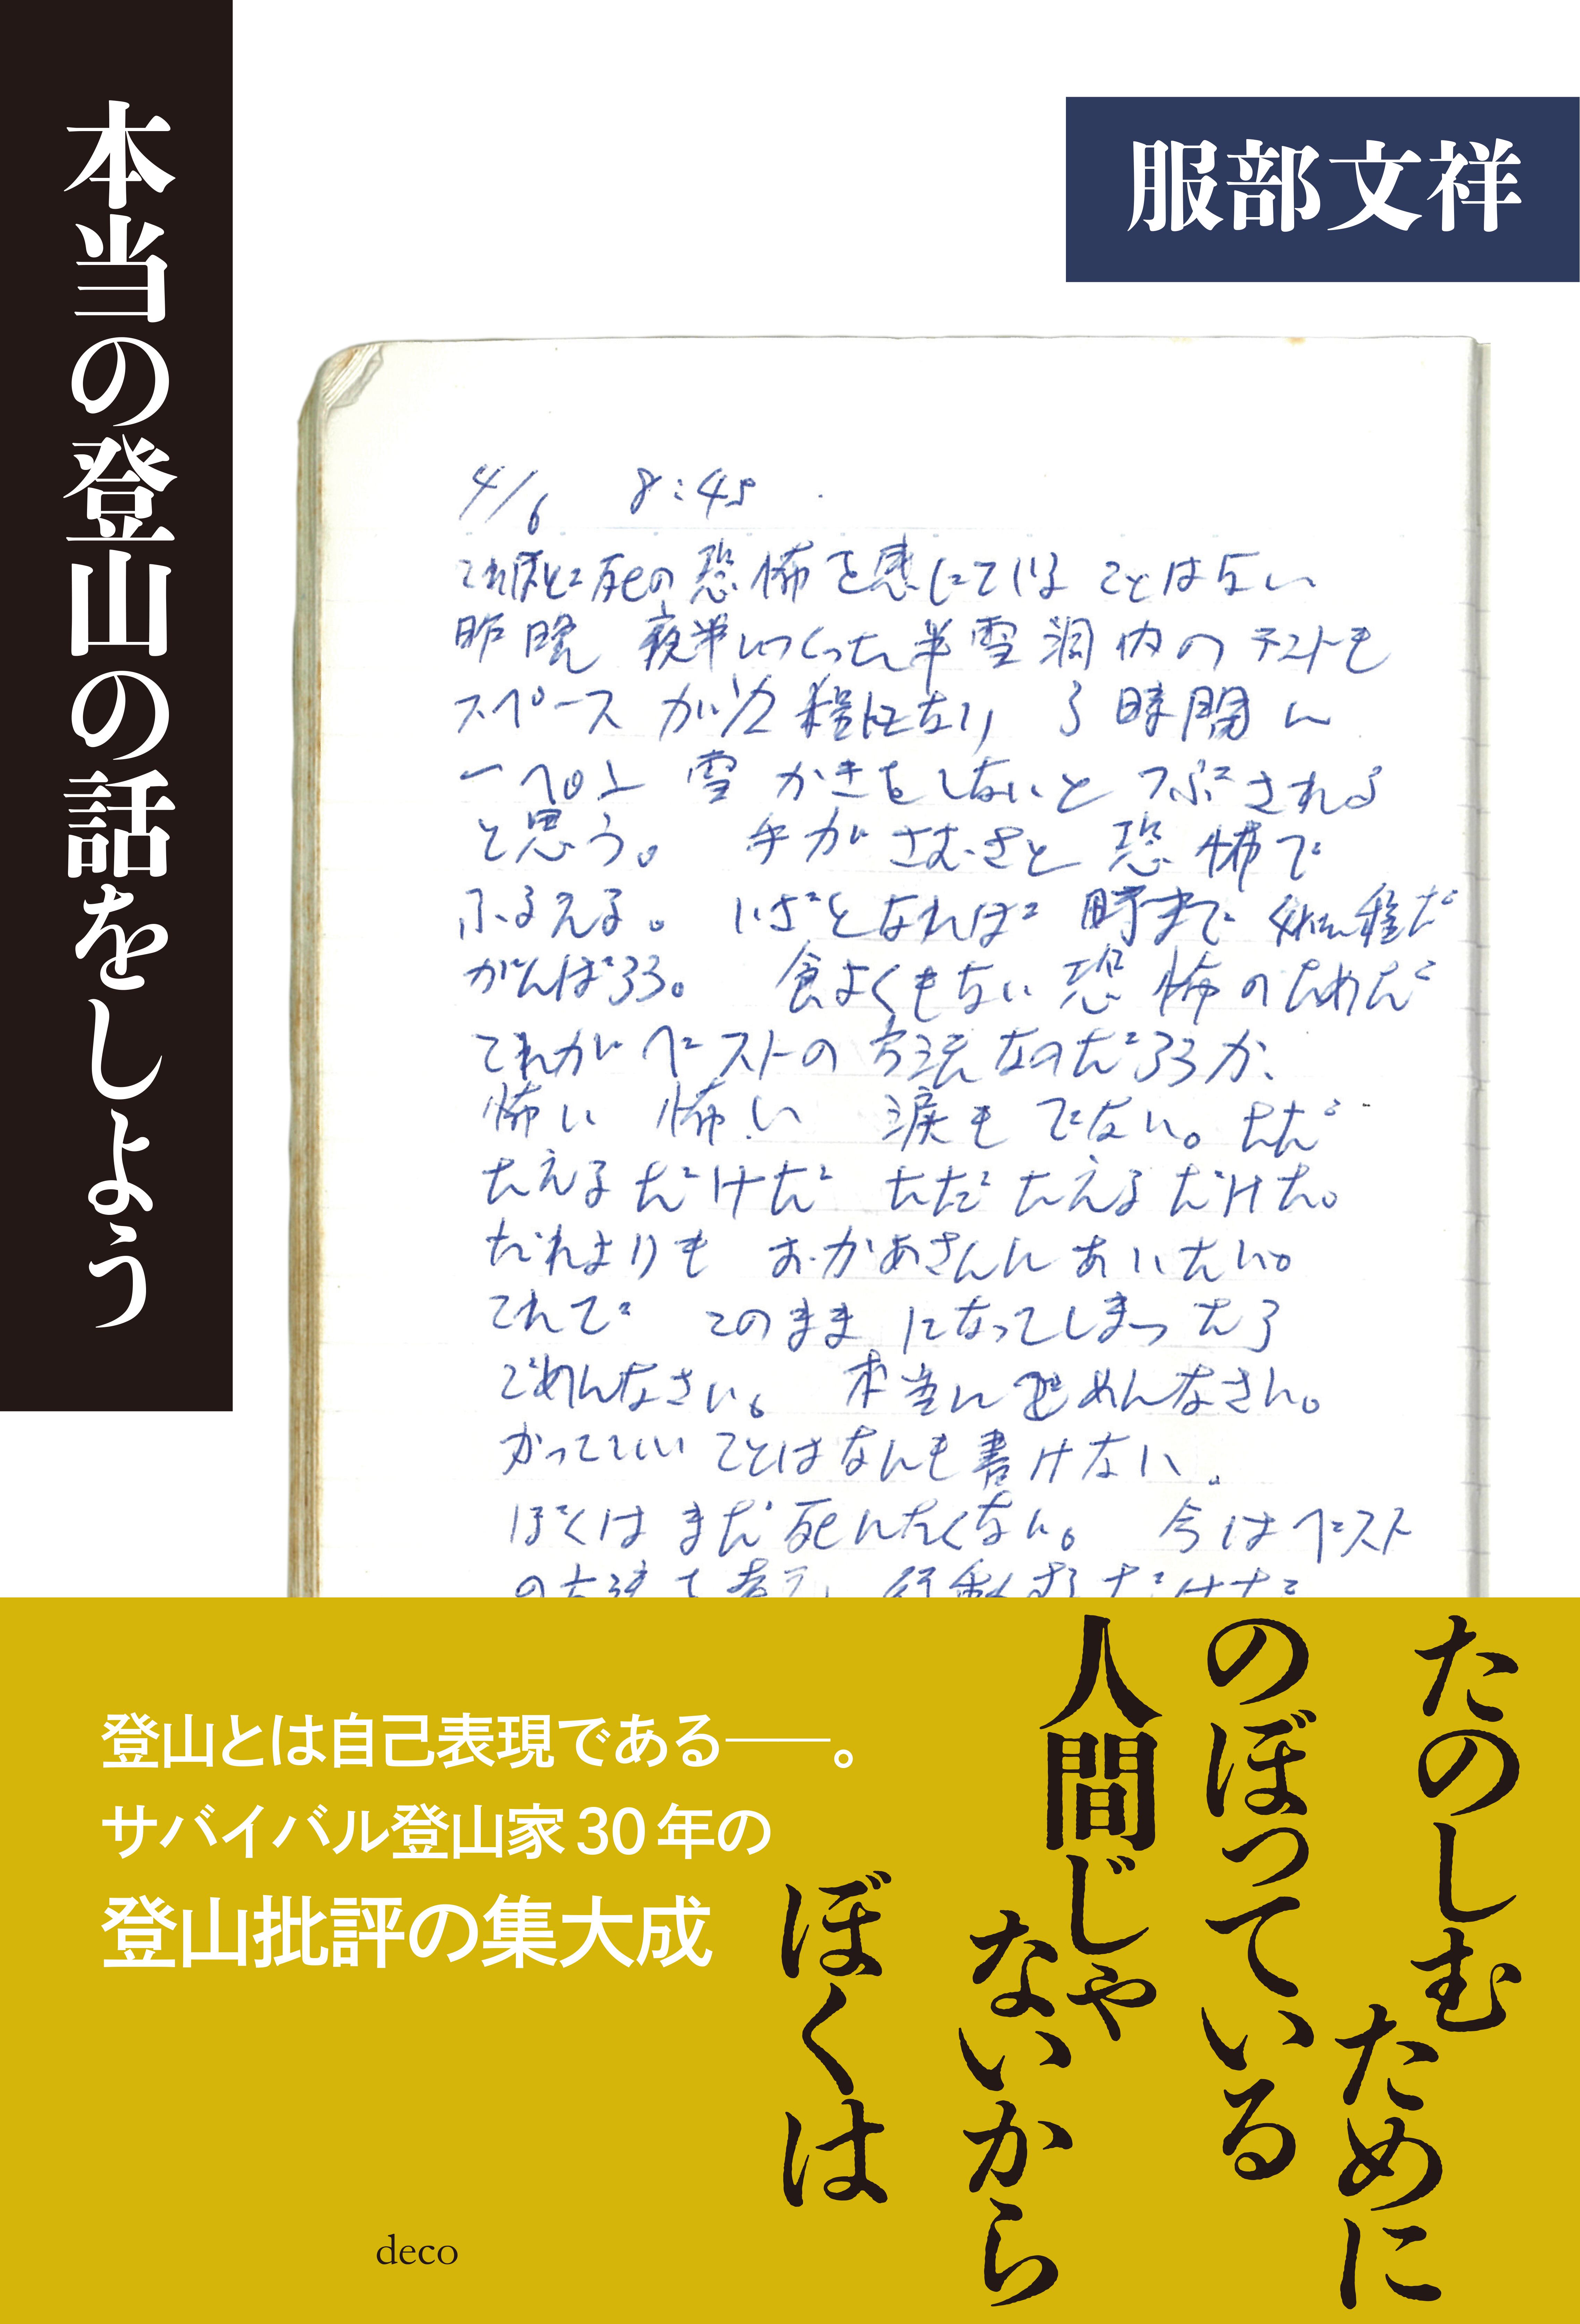 本当の登山の話をしよう
服部文祥
4/6 8:45
これほどに死の恐怖を感じている ことはない
昨晩 夜半につくった半雪洞内のテントも
スペースが1/2程になり 3時間に
一ぺん 雪かきをしないと つぶされる
と思う。 手が さむさと 恐怖で
ふるえる。 いざとなれば
がんばろう。 食よくもない 恐怖のためだ
これが ベストの 方法なのだろうか、
怖い 怖い 涙も でない。ただ
たえるだけだ ただ たえるだけだ。
だれよりも おかあさんに あいたい。
これで このまま になってしまったら
ごめんなさい。 本当に ごめんなさい。
かっこいい ことはなんも書けない。
ぼくは まだ 死にたくない。 今は ベスト
の方法を考え、行動するだけだ
たのしむ ために
のぼっている
人間じゃ ないから
ぼくは
登山とは自己表現である──。
サバイバル登山家30年の
登山批評の集大成
deco